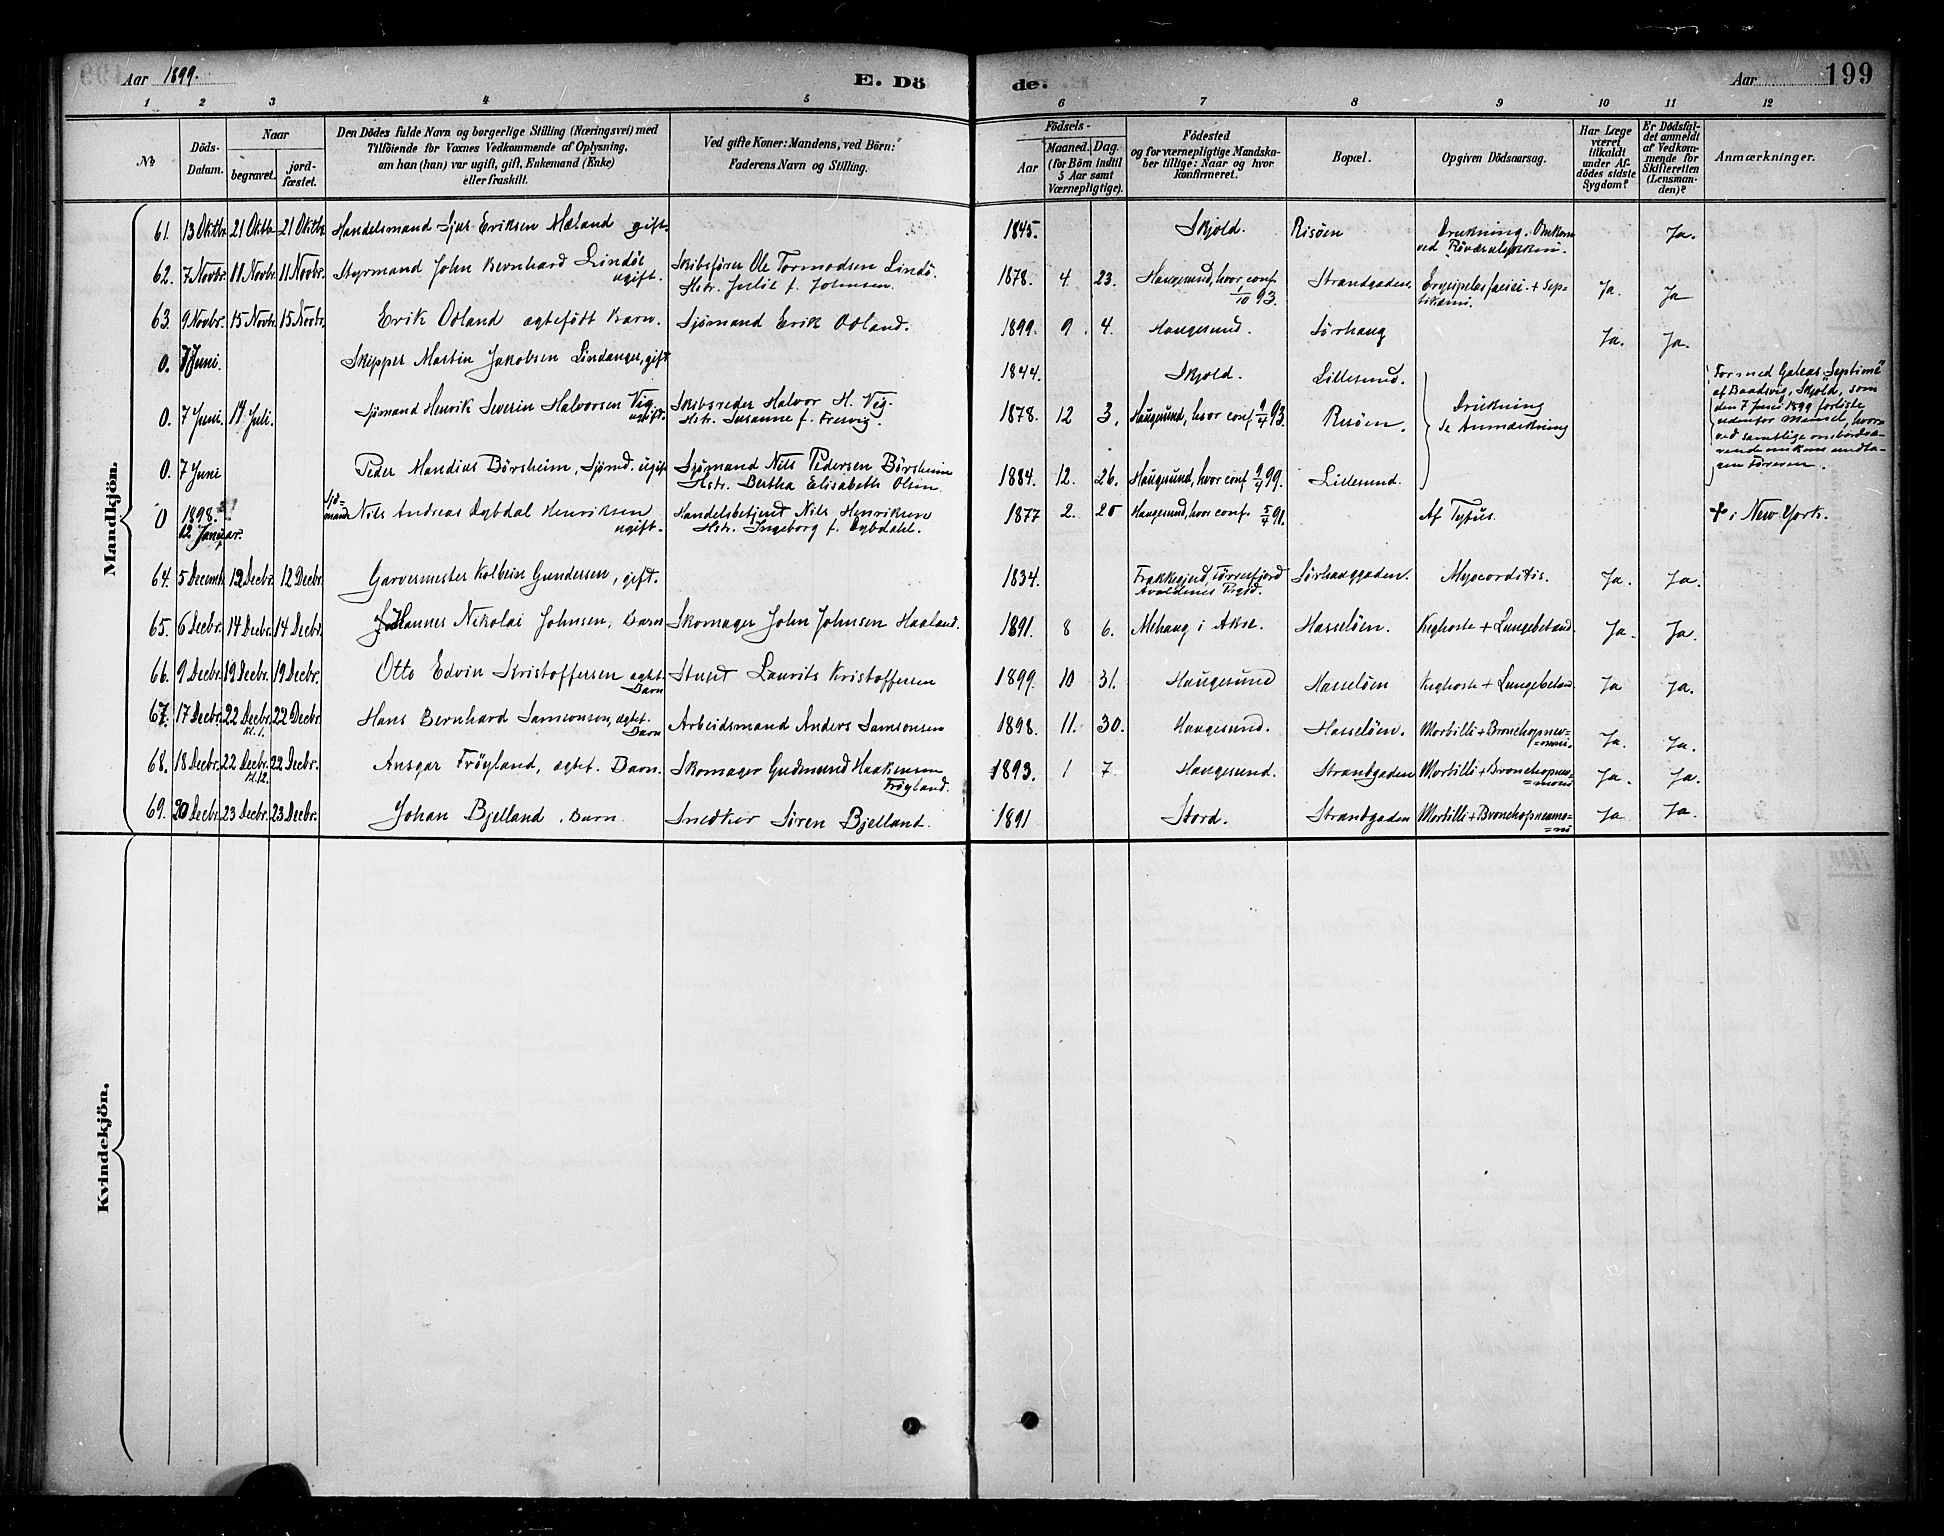 Aar 1899. E. Dö de. Aar 199
1 2 3 4 5 6 7 8 9 10 11 12
No
Döds-Datum.
Naar
begravet. jordfæstet.
Den Dödes fulde Navn og borgerlige Stilling (Næringsvei) med
Tilföiende for Voxnes Vedkommende af Oplysning,
om han (hun) var ugift, gift, Enkemand (Enke)
eller fraskilt.
Ved gifte Koner: Mandens, ved Börn:
Faderens Navn og Stilling.
Födsels-
Aar Maaned. Dag.
(for Börn indtil
5 Aar samt
Værnepligtige).
Födested
og for værnepligtige Mandskaber tillige: Naar og hvor
konfirmeret.
Bopæl.
Opgiven Dödsaarsag.
Har Læge
været
tilkaldt
under Afdödes sidste
Sygdom?
Er Dödsfaldet anmeldt
af Vedkommende for
Skifteretten
(Lensmanden)?
Anmærkninger.
Mandkjön.
61. 13 Oktbr. 21 Oktb. 21 Oktbr. Handelsmand Sjur Eriksen Mæland gift. 1845. Skjold. Risöen Drukning. Omkom
ved Röværsholmen. Ja.
62. 7 Novbr. 11 Novbr. 11 Novbr. Styrmand John Bernhard Lindöe
ugift. Skibsförer Ole Tormodsen Lindö.
Hstr. Julie f. Johnsen. 1878. 4 23. Haugesund, hvor conf.
1/10 93. Strandgaden. Erysipelas faciei + Septikæmi. Ja. Ja
63. 9 Novbr. 15 Novbr. 15 Novbr. Erik Odland ægtefödt Barn. Sjömand Erik Odland. 1899. 9. 4. Haugesund. Sörhaug Ja. Ja.
0. 7 Juni. Skipper Martin Jakobsen Lindanger, gift 1844. Skjold. Lillesund.
0. 7 Juni. 17 Juli. Sjömand Henrik Severin Halvorsen Vig.
ugift. Skibsreder Halvor H. Vig.
Hstr. Susanne f. 1878. 12 3. Haugesund, hvor conf. 9/4 93. Risöen. Drukning
se Anmærkning
0. 7 Juni Peder Mandius Börsheim, Sjömd. ugift Sjömand Nils Pedersen Börsheim
Hstr. Bertha Elisabeth Olsen. 1884. 12. 26. Haugesund, hvor conf. 9/4 99. Lillesund.
For med Galeas "Septima"
af Baadsvig, Skjold, som
den 7 Juni 1899 forliste
udenfor, hvorved samtlige ombordværende omkom undtagen Föreren.
0 1898
12 Januar. Sjömand Nils Andreas Dybdal Henriksen
ugift. Handelsbetjent Nils Henriksen
Hstr. Ingeborg f. Dybdahl. 1877 2. 25 Haugesund, hvor conf. 5/4 91. Af Tyfus. + i New York.
64. 5 Decemb. 12 Decbr. 12 Decbr. Garvermester Kolbein Gundersen, gift. 1834. Frakkagjerd, Förresfjord
Avaldsnes Prgjd. Sörhauggaden. Myocorditis. Ja. Ja.
65. 6 Decbr. 14 Decbr. 14 Decbr. Johannes Nikolai Johnsen, Barn Skomager John Johnsen Haaland. 1891. 8 6. Mehaug i Akse. Hasselöen. Kighoste + Lungebetænd. Ja. Ja.
66. 9 Decbr. 19 Decbr. 19 Decbr. Otto Edvin Kristoffersen ægte
Barn Stuert Laurits Kristoffersen 1899. 10 31. Haugesund Hasselöen Kighoste + Lungebetænd. Ja Ja.
67. 17 Decbr. 22 Decbr.
kl. 1. 22 Decbr. Hans Bernhard Samsonsen, ægte.
Barn Arbeidsmand Anders Samsonsen 1898. 11. 30. Haugesund. Hasselöen. Morbilli + Bronchopneu=
=moni. Ja. Ja.
68. 18 Decbr. 22 Decbr.
kl. 12. 22 Decbr. Ansgar Fröyland, ægte. Barn. Skomager Gudmund Haakensen
Fröyland. 1893. 1 7. Haugesund. Strandgaden Morbilli + Bronchopneu=
=moni Ja. Ja.
69. 20 Decbr. 23 Decbr. 23 Decbr. Johan Bjelland. Barn. Snedker Sören Bjelland. 1891 Stord. Strandgaden Morbilli + Bronchopneumo=
=ni Ja Ja.
Kvindekjön.